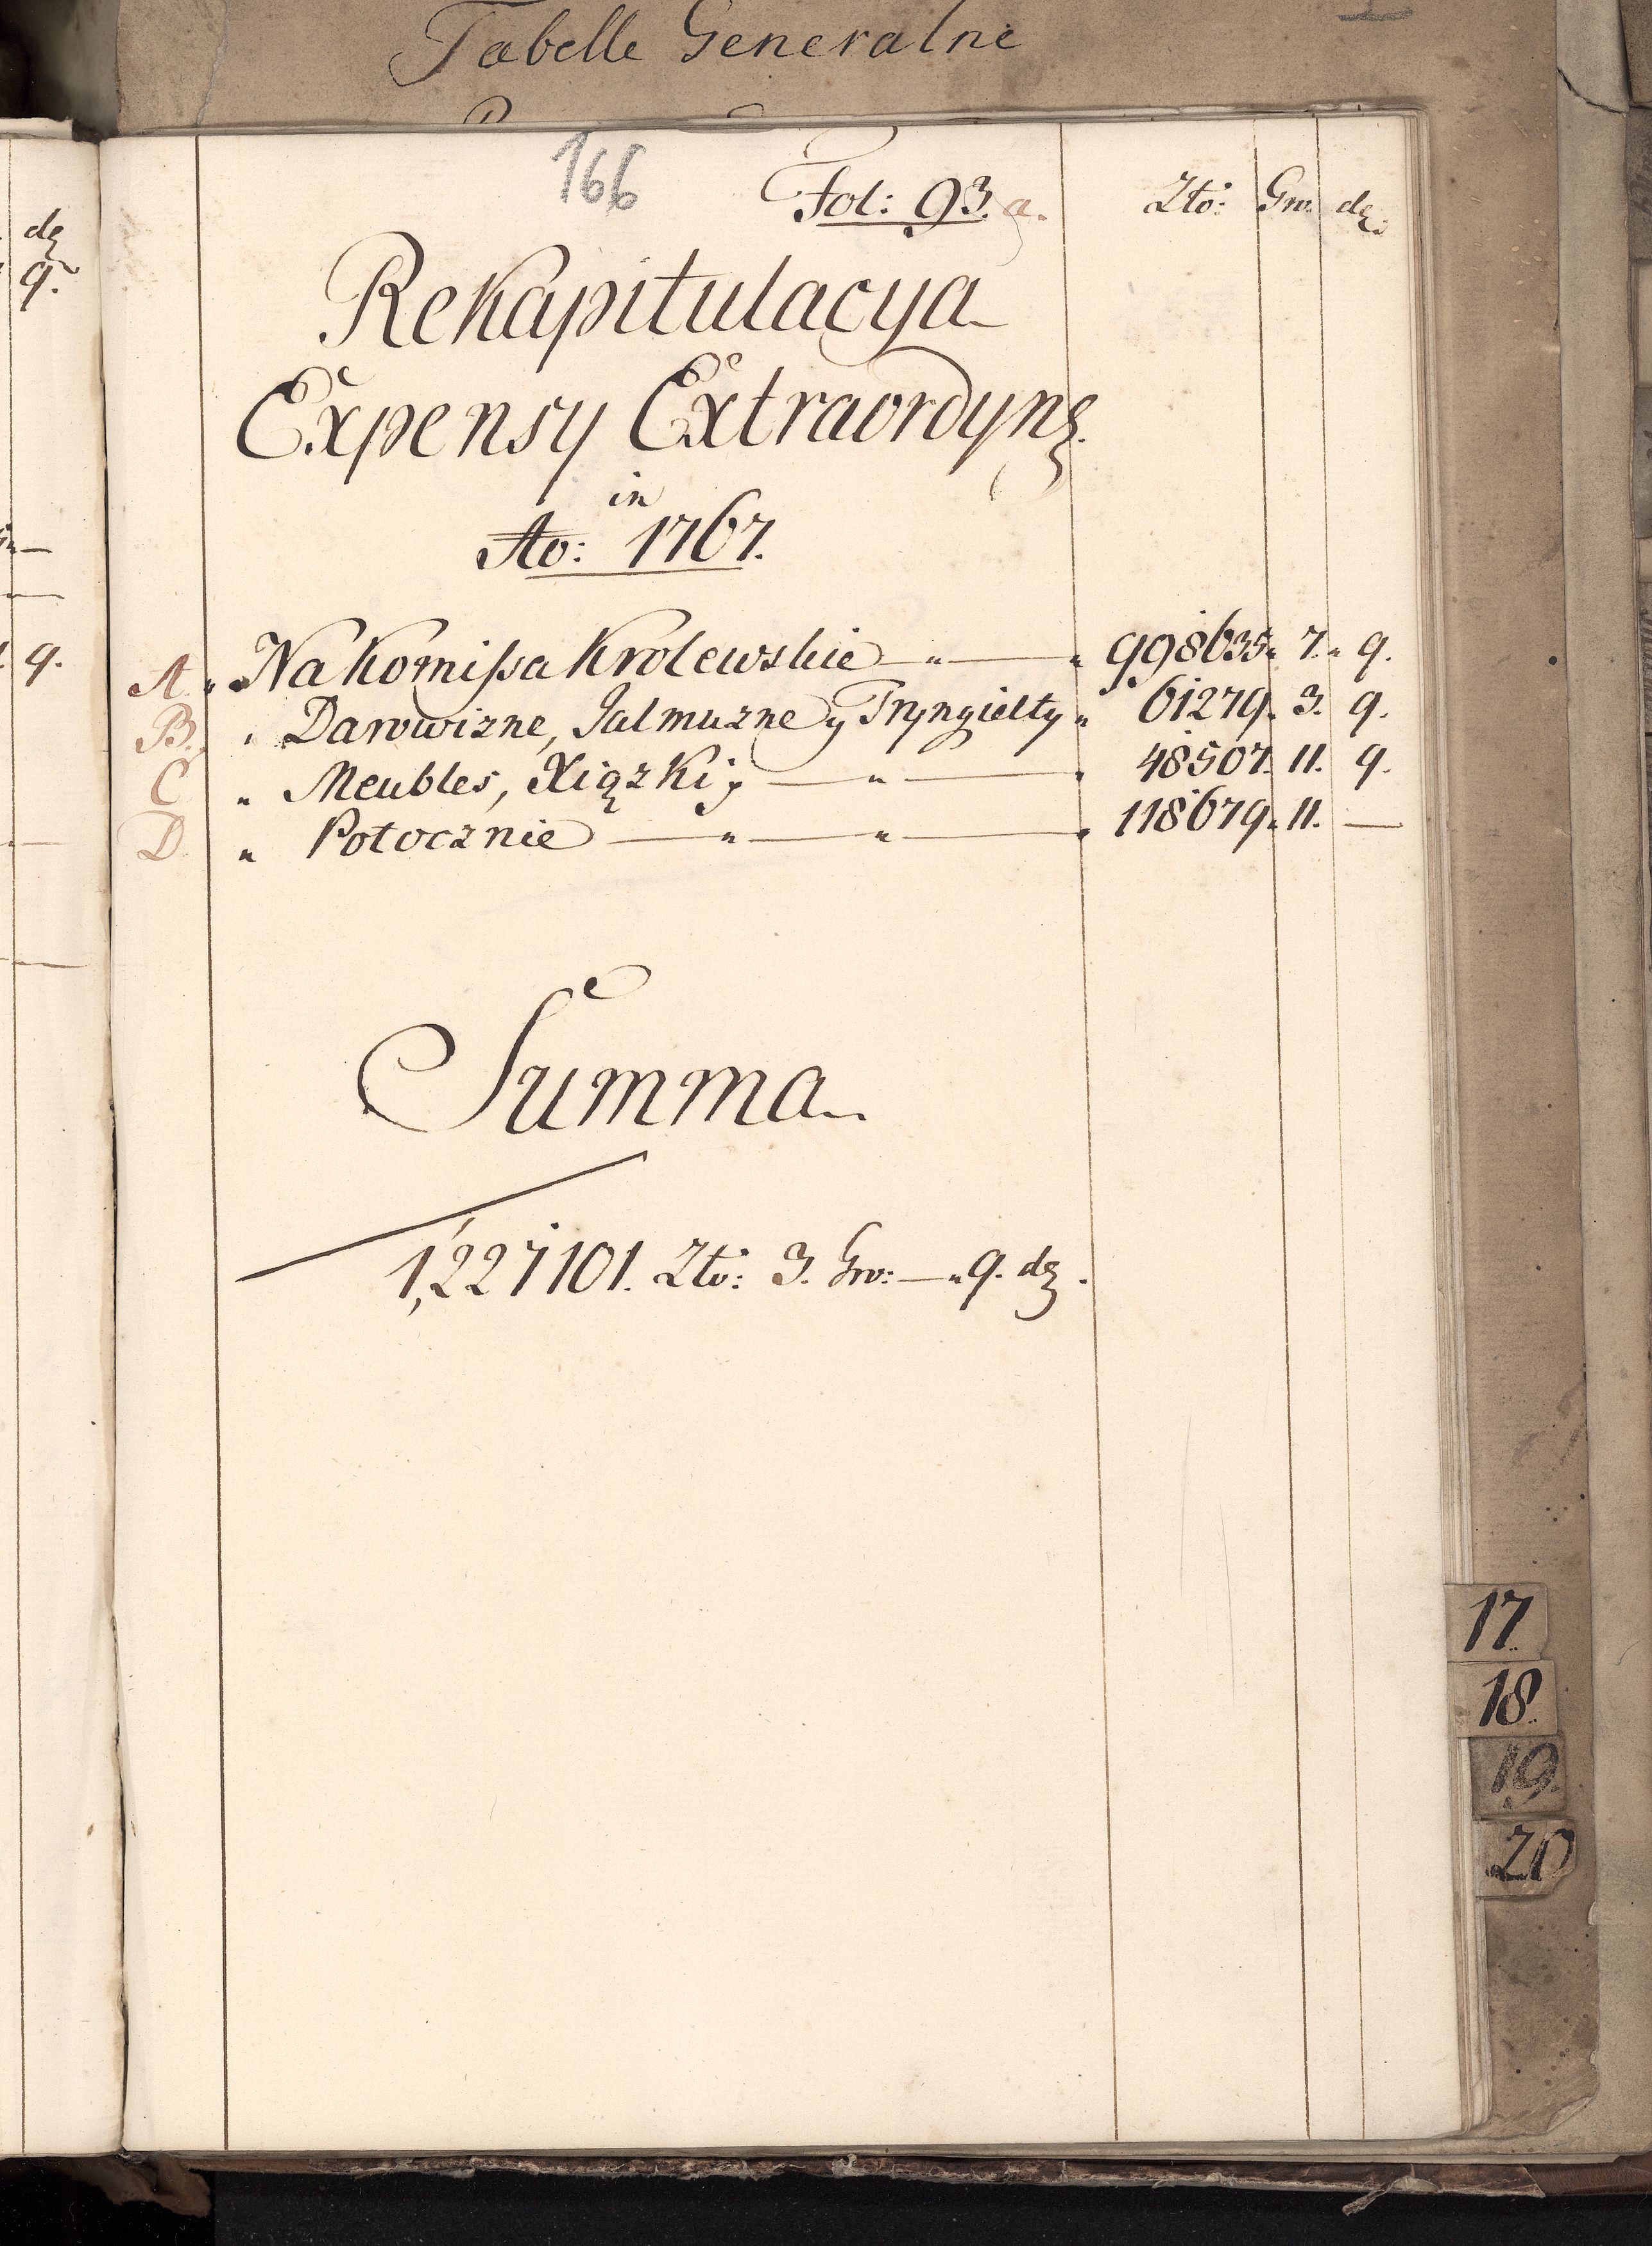 Tabelle Generalne
166
Fol: 93. a.
Złő: Gro. dę.
Rekapitulacya
Expensy Extraordynę.
in
Ao: 1767.
A. „ Na Komissa Krolewskie — „ — „ 998635. 7. „ 9.
B. „ Darowizne, Jalmuzne y Tryngielty „ 61279. 3. 9.
C „ Meubles, Xiązki, — „ — „ 48507. 11. 9.
D. „ Potocznie — „ — „ — „ 118679. 11. —
Summa
1,227101. Złő: 3. Gro: — „ 9. dę.
17.
18.
19.
20
dę
9.
9.